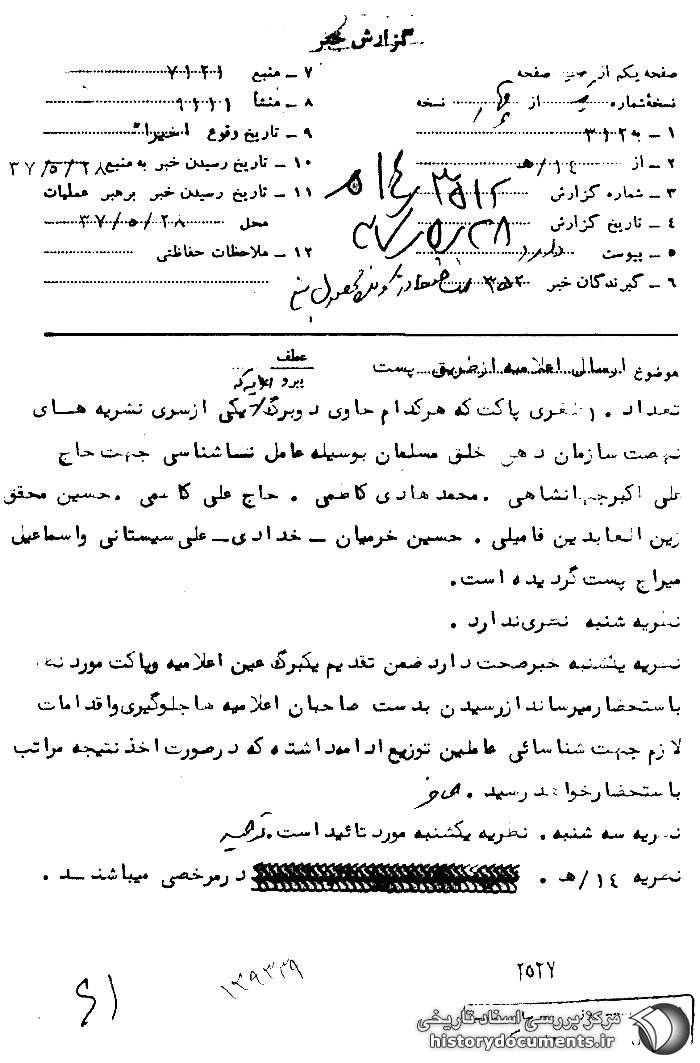 گزارش خبر
صفحه یکم از صفحه
نسخهٔ شماره از نسخه
۱ ـ به ۳۱۲
۲ ـ از ۱٤/هـ
۳ ـ شماره گزارش
٤ ـ تاریخ گزارش
۵ ـ پیوست دارد
۶ ـ گیرندگان خبر
۷ ـ منبع ۷۱۲۱
۸ ـ منشأ ۹۱۱۱
۹ ـ تاریخ وقوع اخیرا"
۱۰ ـ تاریخ رسیدن خبر به منبع ۳۷/۵/۲۸
۱۱ ـ تاریخ رسیدن خبر برهبر عملیات
محل ۳۷/۵/۲۸
۱۲ ـ ملاحظات حفاظتی
موضوع ارسال اعلامیه از طریق پست
عطف
پیرو
تعداد ۱۰ نفری پاکت که هرکدام حاوی دوبرگ یکی ازسری نشریه هسای
نهضت سازمان دهی خلق مسلمان بوسیله عامل نساشناسی جهت حاج
علی اکبرجهانشاهی . محمدهادی کاظمی . حاج علی کاظمی . حسین محقق
زین العابدین فامیلی . حسین خرمیان ـ خدادی ـ علی سیستانی واسماعیل
میراج پست گردیده است .
نظریه شنبه نظری ندارد .
نظریه یکشنبه خبرصحت دارد ضمن تقدیم یکبرگ عین اعلامیه وپاکت مورد نظر
باستحضارمیرساند ازرسیدن بدست صاحبان اعلامیه ها جلوگیری واقدامات
لازم جهت شناسائی عاملین توزیع ادامه داشته که درصورت اخذ نتیجه مراتب
باستحضارخواهد رسید .
نظریه سه شنبه . نظریه یکشنبه مورد تائید است .
نظریه ۱٤/هـ . درمرخصی میباشنـد .
۲۵۲۷
۱۳۹۳۳۹
مرکز بررسی اسناد تاریخی
historydocuments.ir